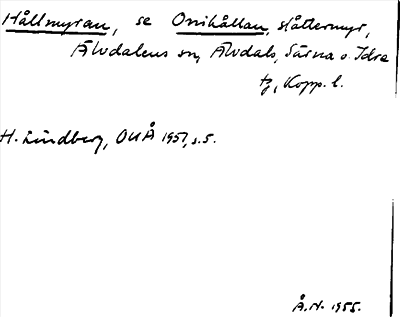 Hållmyran, se Onihållan, slåttermyr,
Älvdalens sn, Älvdals, Särna o. Idre
tg, Kopp. l.
H. Lindberg, OUÅ 1951, s. 5.
Å.N. 1955.